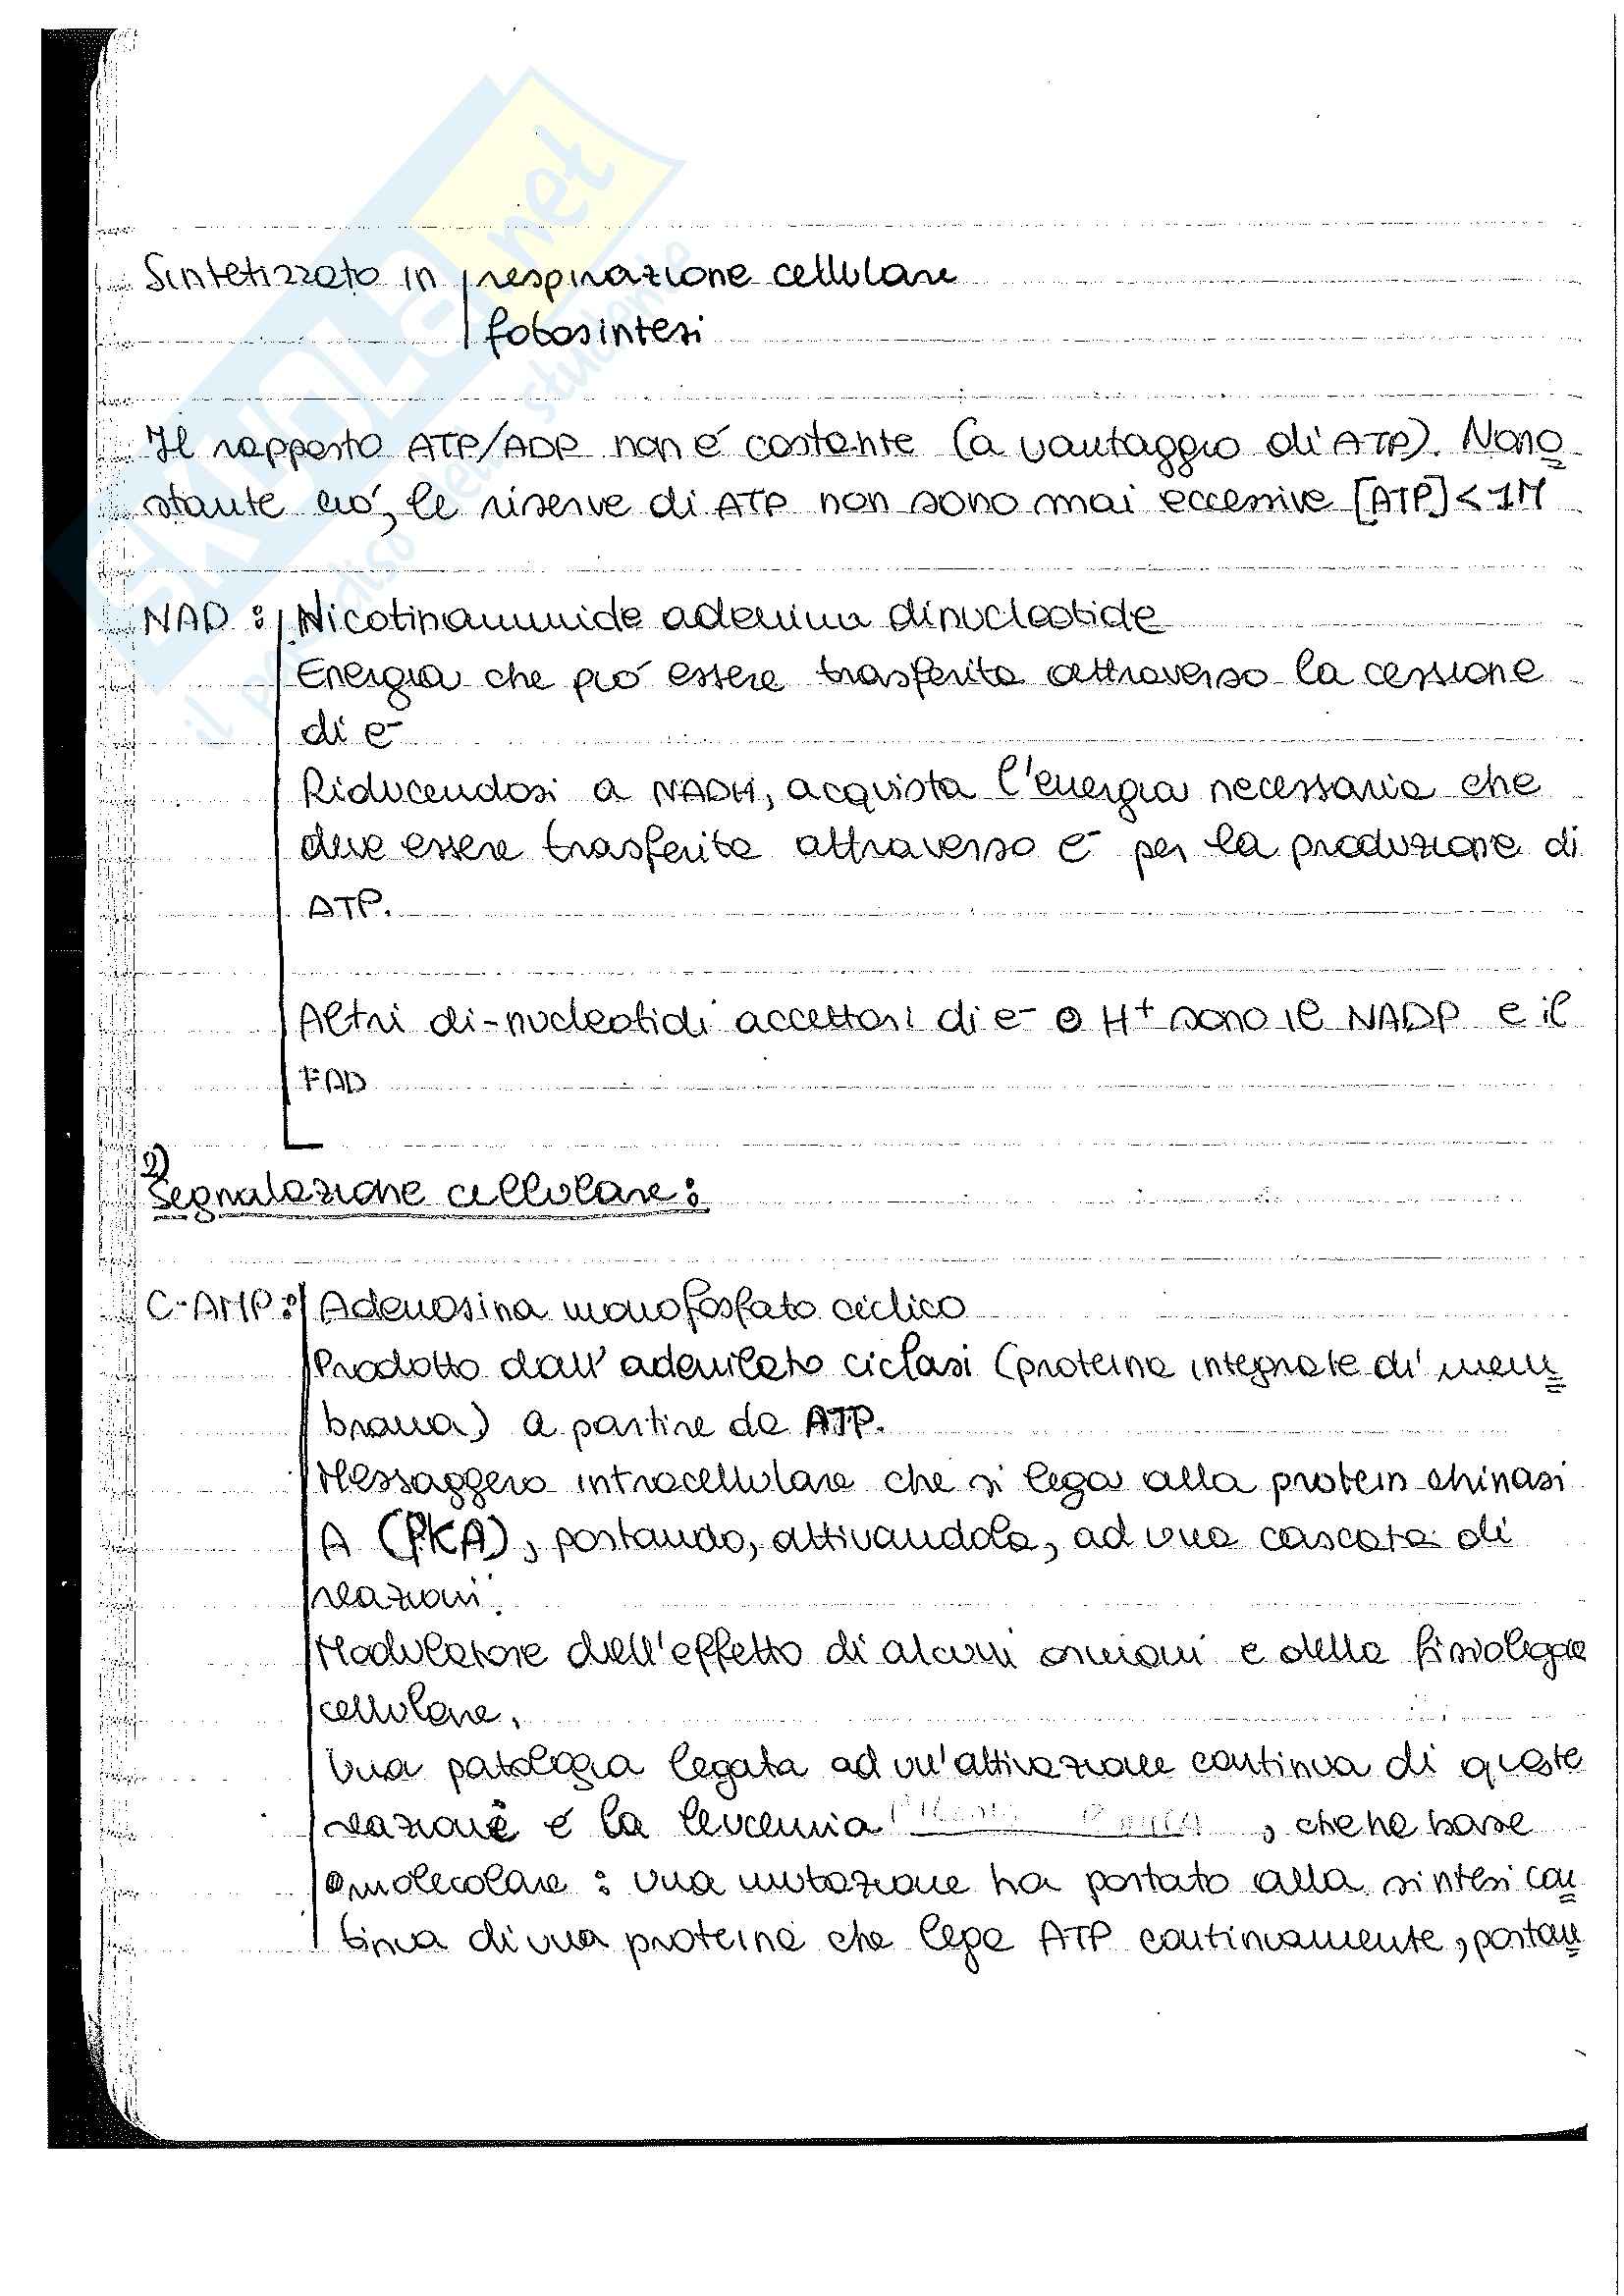 SKUOLA.net
il paradiso dello studente
Sintetizzato in | respirazione cellulare
fotosintesi
Il rapporto ATP/ADP non é costante (a vantaggio di ATP). Nono
stante ció, le riserve di ATP non sono mai eccessive [ATP]<1M
NAD: Nicotinammide adenina dinucleotide
Energia che puó essere trasferita attraverso la cessione
di e⁻
Riducendosi a NADH, acquista l'energia necessaria che
deve essere trasferita attraverso e⁻ per la produzione di
ATP.
Altri di-nucleotidi accettori di e⁻ o H⁺ sono il NADP e il
FAD
2)
Segnalazione cellulare:
C-AMP: Adenosina monofosfato ciclico
Prodotto dall'adenilato ciclasi (proteina integrale di mem
brana) a partire da ATP.
Messaggero intracellulare che si lega alla protein chinasi
A (PKA), portando, attivandola, ad una cascata di
reazioni.
Modulatore dell'effetto di alcuni ormoni e della fisiologia
cellulare.
Una patologia legata ad un'attivazione continua di queste
reazione é la leucemia , che ha base
molecolare: una mutazione ha portato alla sintesi con
tinua di una proteina che lega ATP continuamente, portan